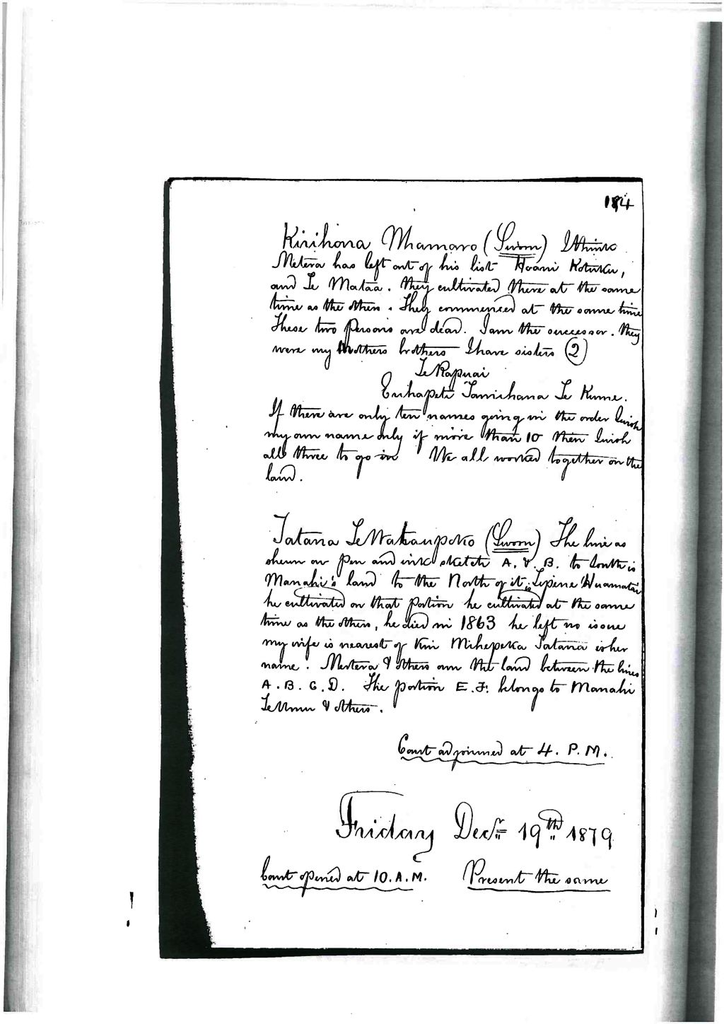 184
Kirihona Whamaro (Sworn) I think
Metera has left out of his list Hoani Kotuku,
and Te Mataa. they cultivated there at the same
time as the others. They commenced at the same time
These two Persons are dead. I am the successor. they
were my Mothers brothers I have sisters (2)
Te Rapuai
Enhapeti Tamihana Te Kume.
If there are only ten names going in the order I wish
my own name only if more than 10 then I wish
all three to go in We all worked together on the
land.
Tatana Te Whakaupoko (Sworn) The line as
shewn on pen and ink sketch A. & B. to South is
Manahi's land to the North of it is Epene Huamatai
he cultivated on that portion he cultivated at the same
time as the others, he died in 1863 he left no issue
my wife is nearest of Kin Mihepeka Tatana is her
name. Metera & others own the land between the lines
A. B. C. D. The portion E. F. belongs to Manahi
Te Umu & others.
Court adjourned at 4. P. M.
Friday Decr 19th 1879
Court opened at 10. A. M. Present the same